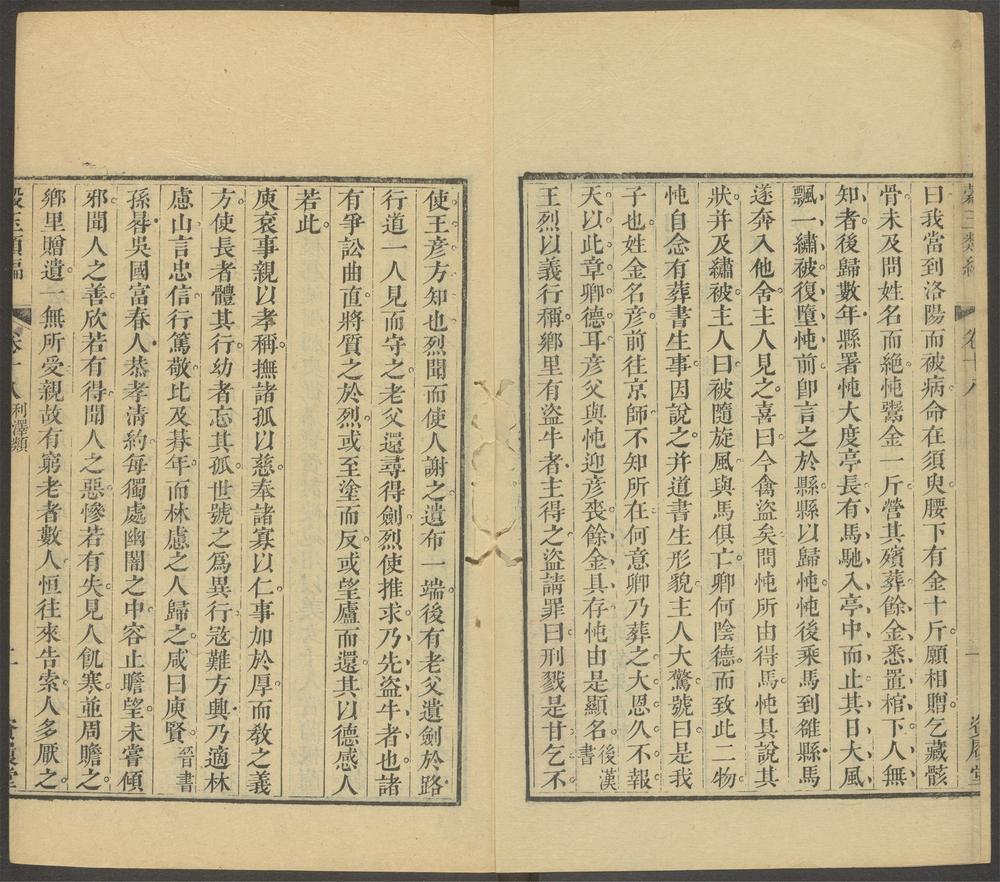 彀玉類編
卷十八
曰我當到洛陽而被病命在須臾腰下有金十斤願相贈乞藏骸
骨未及問姓名而絕忳鬻金一斤營其殯葬餘金悉置棺下人無
知者後歸數年縣署忳大度亭長有馬馳入亭中而止其日大風
飄一繡被復墮忳前卽言之於縣縣以歸忳忳後乘馬到雒縣馬
遂奔入他舍主人見之喜曰今禽盜矣問忳所由得馬忳具說其
狀并及繡被主人曰被隨旋風與馬俱亡卿何陰德而致此二物
忳自念有葬書生事因說之并道書生形貌主人大驚號曰是我
子也姓金名彥前往京師不知所在何意卿乃葬之大恩久不報
天以此章卿德耳彥父與忳迎彥喪餘金具存忳由是顯名後漢書
王烈以義行稱鄉里有盜牛者主得之盜請罪曰刑戮是甘乞不
使王彥方知也烈聞而使人謝之遺布一端後有老父遺劍於路
行道一人見而守之老父還尋得劍烈使推求乃先盜牛者也諸
有爭訟曲直將質之於烈或至塗而反或望廬而還其以德感人
若此
庾袞事親以孝稱撫諸孤以慈奉諸寡以仁事加於厚而教之義
方使長者體其行幼者忘其孤世號之爲異行寇難方興乃適林
慮山言忠信行篤敬比及朞年而林慮之人歸之咸曰庾賢晉書
孫晷吳國富春人恭孝清約每獨處幽闇之中容止瞻望未嘗傾
邪聞人之善欣若有得聞人之惡慘若有失見人飢寒並周贍之
鄉里贈遺一無所受親故有窮老者數人恒往來告索人多厭之
彀玉類編
卷十八
利澤類